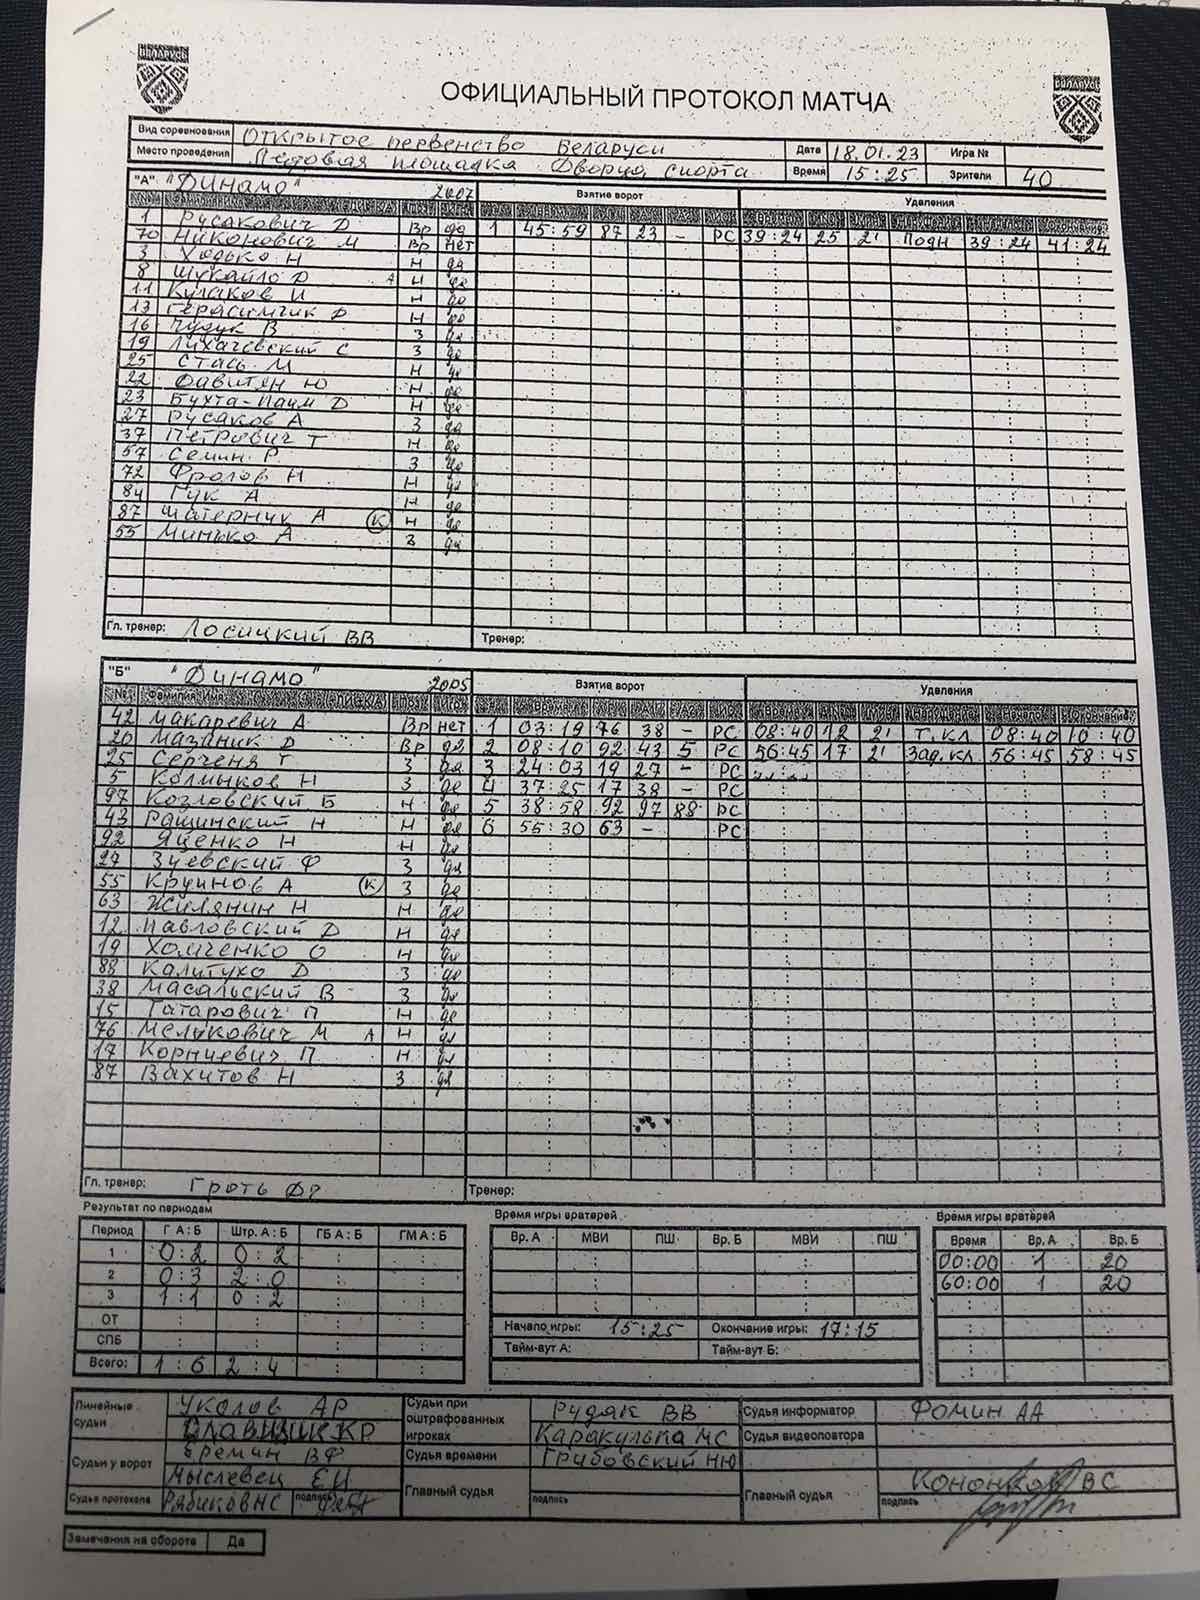 БЕЛАРУСЬ БЕЛАРУСЬ
ОФИЦИАЛЬНЫЙ ПРОТОКОЛ МАТЧА
Вид соревнования Открытое первенство Беларуси Дата 18.01.23 Игра №
Место проведения Ледовая площадка Дворца спорта Время 15:25 Зрители 40
"А" "Динамо" 2007 Взятие ворот Удаления
1 Русакович Д Вр да 1 45:59 87 23 – РС 39:24 25 2' Подн 39:24 41:24
70 Никонович М Вр нет
3 Ходько Н Н да
8 Шукайло D А Н да
11 Кулаков И Н до
13 Герасимчик D Н до
16 Чудук В З да
19 Лихачевский С З да
25 Стась М Н да
22 Фавитян Ю Н до
23 Бухта-Паум D Н до
27 Русаков А З да
37 Петрович Т Н до
57 Семин Р З до
72 Фролов Н Н да
84 Гук А Н до
87 Шатерник А (К) Н до
55 Минько А З да
Гл. тренер: Лосицкий ВВ Тренер:
"Б" "Динамо" 2005 Взятие ворот Удаления
№ Фамилия Имя
42 Макаревич А Вр нет 1 03:19 76 38 – РС 08:40 12 2' Т.кл 08:40 10:40
20 Мазаник D Вр да 2 08:10 92 43 5 РС 56:45 17 2' Зад.кл 56:45 58:45
25 Серченя Т З да 3 24:03 19 27 – РС
5 Колмыков Н З да 4 37:25 17 38 – РС
97 Козловский Б Н да 5 38:58 92 97 88 РС
43 Рашинский Н Н да 6 55:30 63 – РС
92 Яценко Н Н да
27 Зуевский Ф З да
55 Круинов А (К) З да
63 Жилянин Н Н да
12 Павловский D Н да
19 Хомченко О Н да
88 Калитухо D З да
38 Масальский В З да
15 Татарович П Н да
76 Мелякович М А Н да
17 Корниевич П Н да
87 Вахитов Н З да
Гл. тренер: Гроть Тренер:
Результат по периодам Время игры вратарей Время игры вратарей
Период Г А : Б Штр. А : Б ГБ А : Б ГМ А : Б Вр. А МВИ ПШ Вр. Б МВИ ПШ Время Вр. А Вр. Б
1 0:2 0:2 00:00 1 20
2 0:3 2:0 60:00 1 20
3 1:1 0:2
ОТ Начало игры: 15:25 Окончание игры: 17:15
СПБ Тайм-аут А: Тайм-аут Б:
Всего: 1:6 2:4
Линейные судьи Уколов АР Судьи при оштрафованных игроках Рудяк ВВ Судья информатор Фомин АА
Славищик КР Каракулька МС Судья видеоповтора
Судьи у ворот Еремин ВФ Судья времени Грибовский НЮ
Мыслевец ЕИ Главный судья Главный судья Кононков ВС
Судья протокола Рябиков НС подпись подпись подпись
Замечания на обороте Да